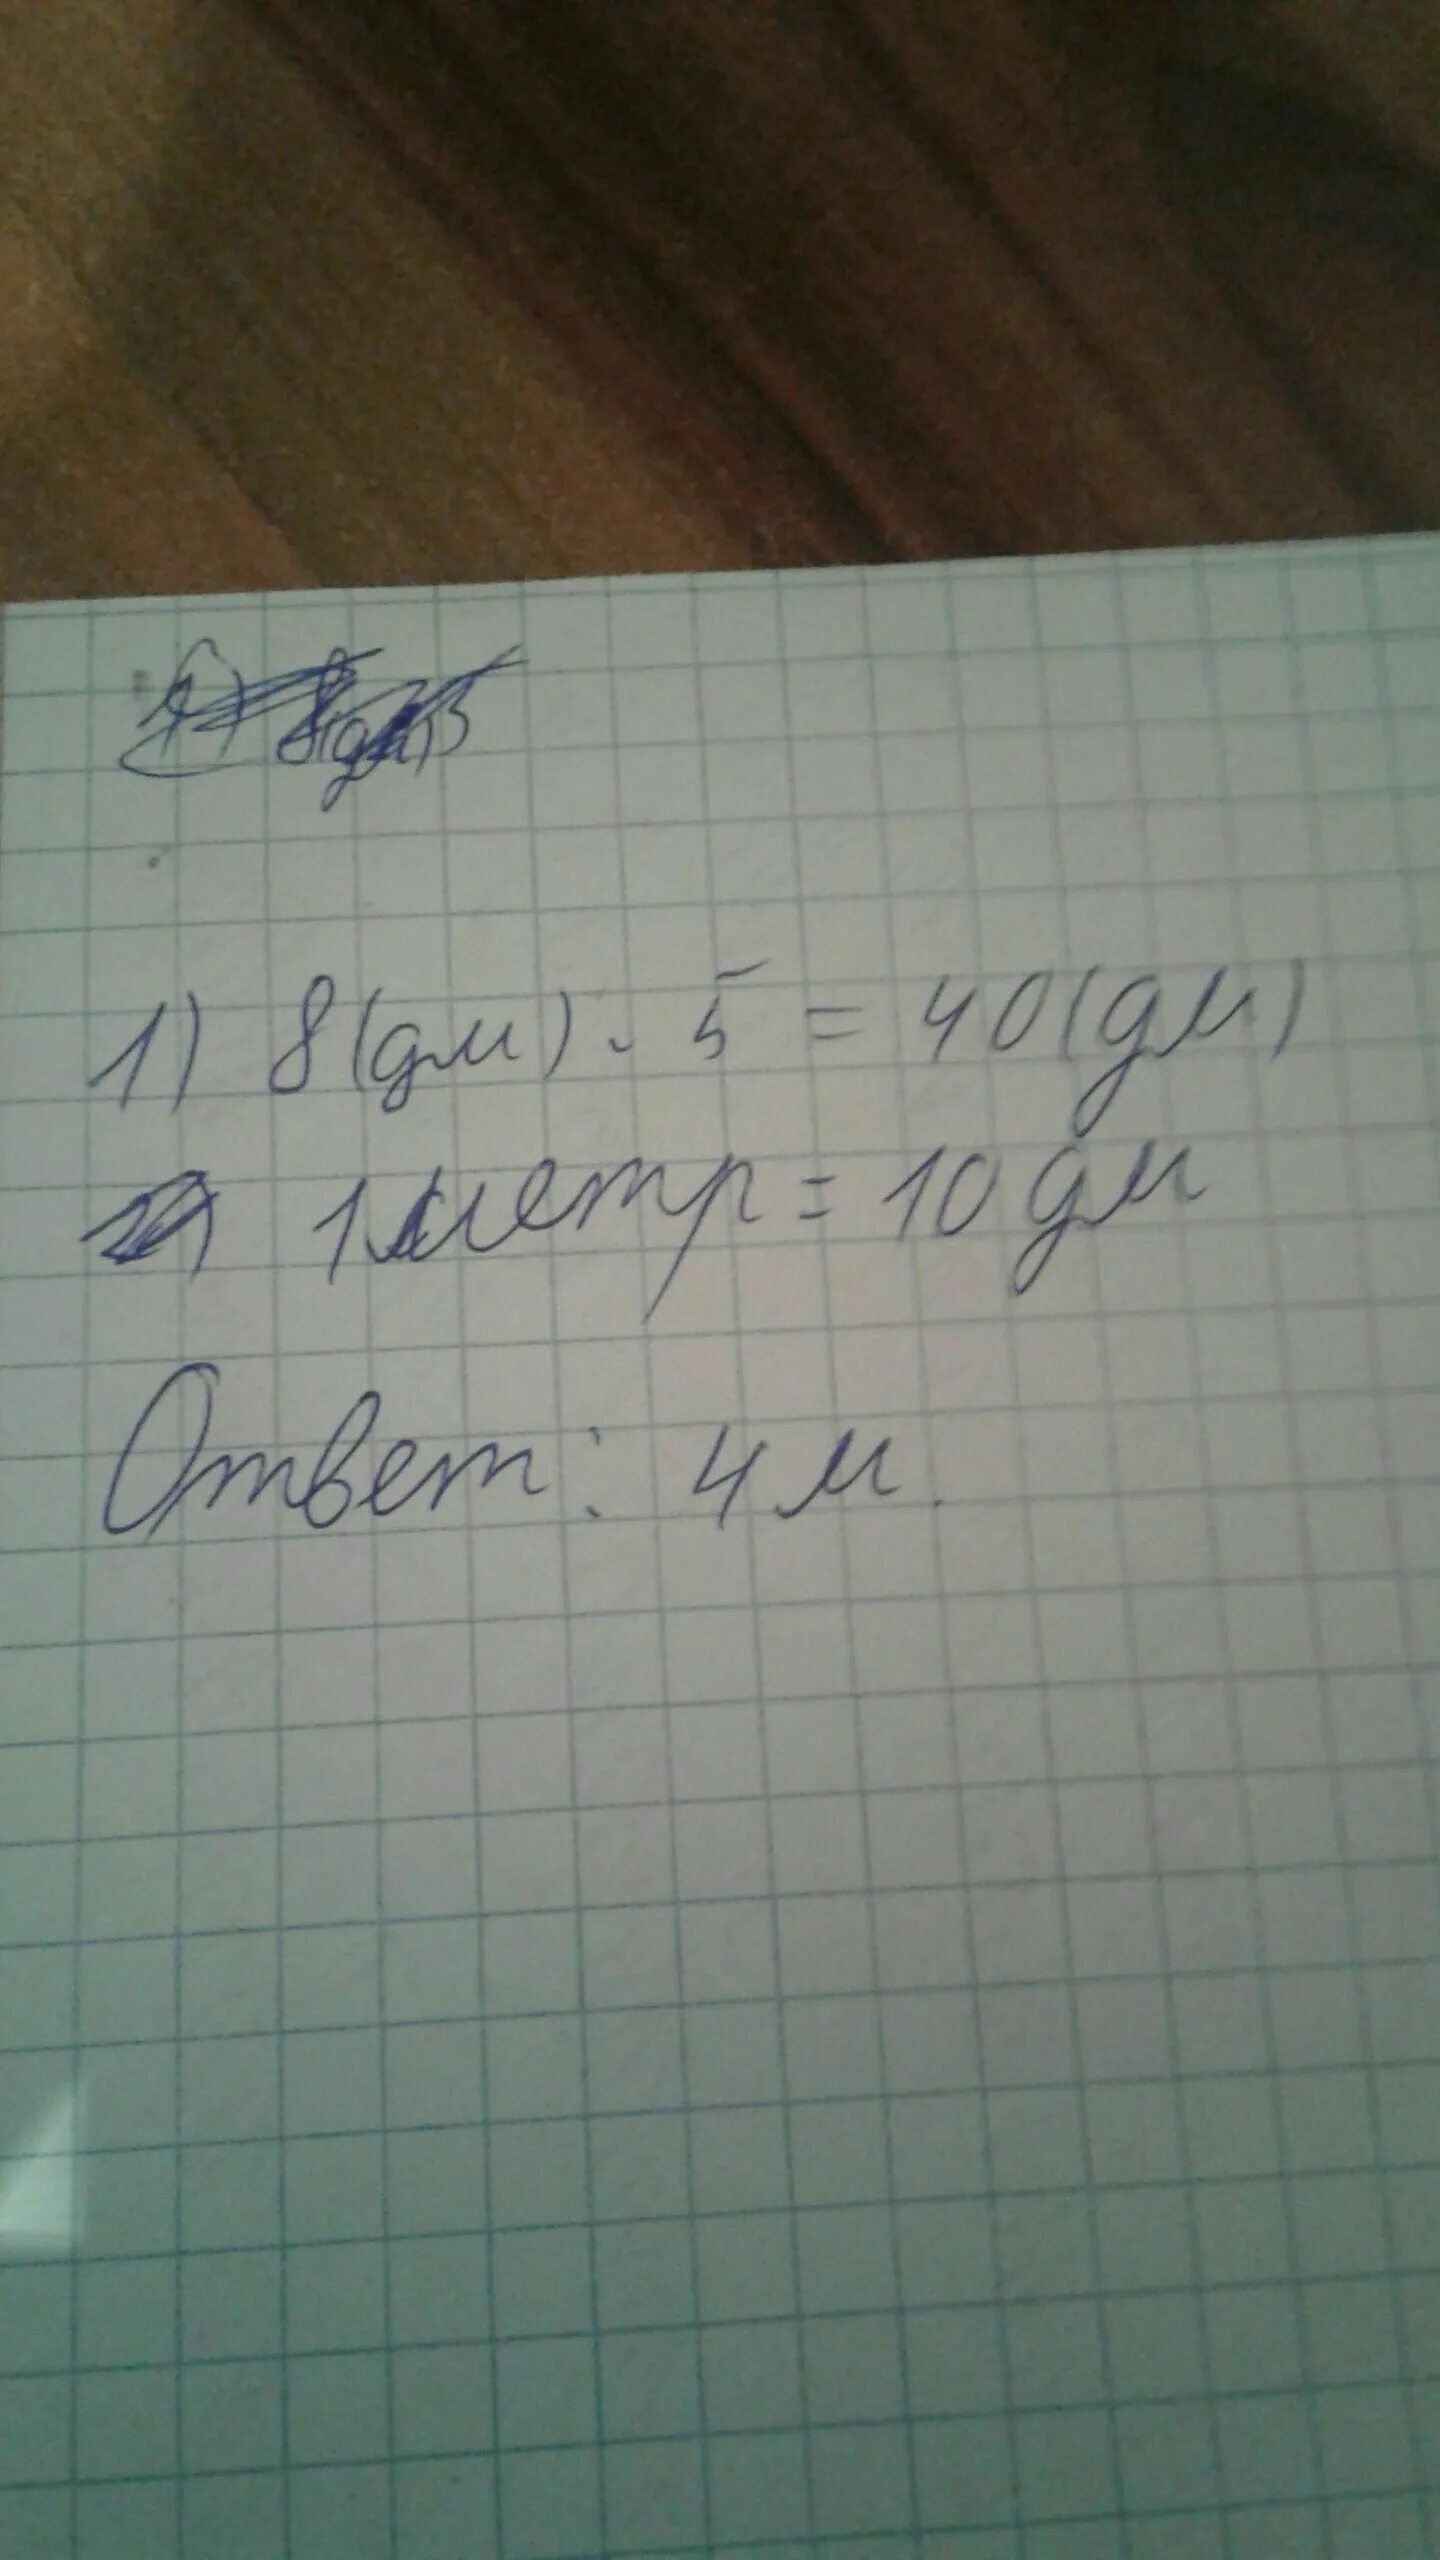 1) 8(дм) · 5 = 40(дм)
1 метр = 10 дм
Ответ: 4 м.